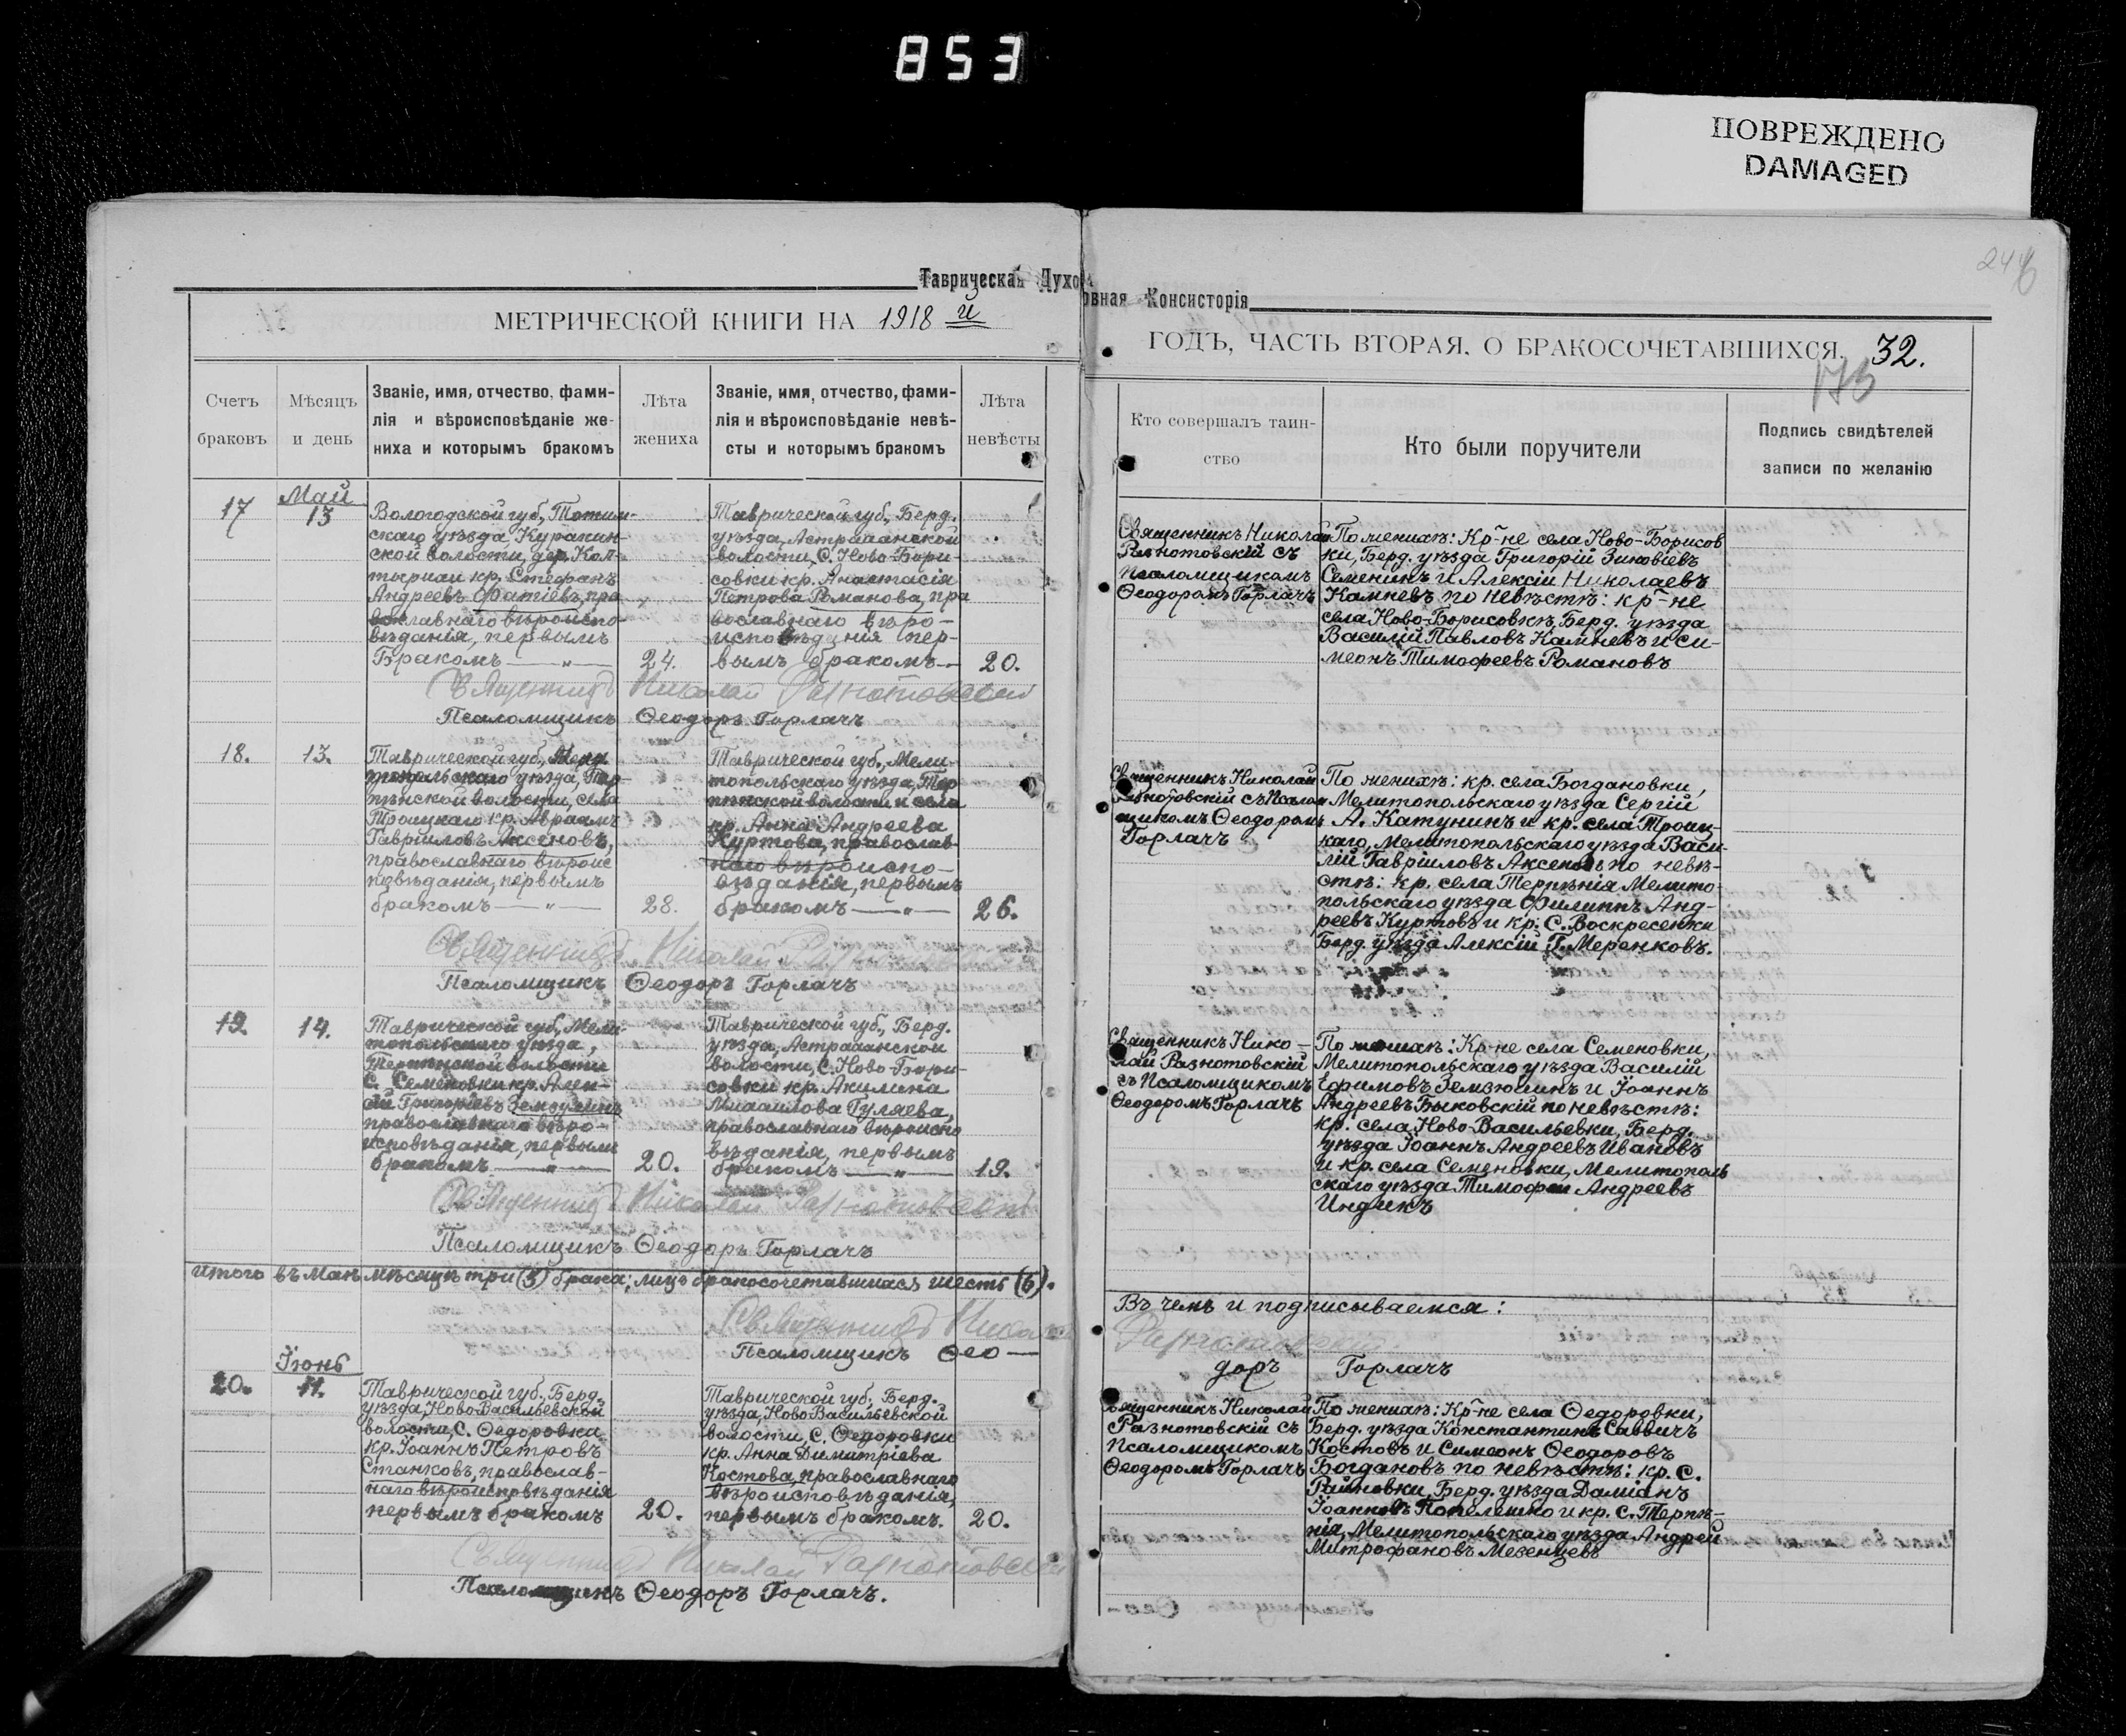 853
ПОВРЕЖДЕНО
DAMAGED
Таврическая Духо
овная Консисторія
МЕТРИЧЕСКОЙ КНИГИ НА 1918 й
ГОДЪ, ЧАСТЬ ВТОРАЯ, О БРАКОСОЧЕТАВШИХСЯ. 32.
Счетъ браковъ
Мѣсяцъ и день
Званіе, имя, отчество, фами-
лія и вѣроисповѣданіе же-
ниха и которымъ бракомъ
Лѣта
жениха
Званіе, имя, отчество, фами-
лія и вѣроисповѣданіе невѣ-
сты и которымъ бракомъ
Лѣта
невѣсты
Кто совершалъ таин-
ство
Кто были поручители
Подпись свидѣтелей
записи по желанію
17
Май
13
Вологодской губ., Тотем-
скаго уѣзда
ской волости, дер.
кр. Стефанъ
Андреевъ Фатіевъ, пра
вославнаго вѣроиспо-
вѣданія, первымъ
Бракомъ — „ —
24.
Таврической губ., Берд.
уѣзда, Астраханской
волости, С. Ново-Бори-
совки кр. Анастасія
Петрова Романова, пра
вославнаго вѣро-
исповѣданія пер-
вымъ бракомъ —
20.
Священникъ Николай
Разнотовскій съ
псаломщикомъ
Ѳеодоромъ Горлачъ
По женихѣ: Кр-не села Ново-Борисов
ки, Берд. уѣзда Григорій Зиновіевъ
Семенинъ и Алексій Николаевъ
Камневъ по невѣстѣ: кр-не
села Ново-Борисовки, Берд. уѣзда
Василій Павловъ Камневъ и Си-
меонъ Тимофеевъ Романовъ
Священникъ Николай Разнотовскій
Псаломщикъ Ѳеодоръ Горлачъ
18.
13.
Таврической губ.,
топольскаго уѣзда, Тер-
пѣнской волости, села
Троицкаго кр. Авраамъ
Гавриловъ Аксеновъ,
православнаго вѣроис
повѣданія, первымъ
бракомъ — „ —
28.
Таврической губ., Мели-
топольскаго уѣзда, Тер
пѣнской волости и села
кр. Анна Андреева
Куртова, православ-
наго вѣроиспо-
вѣданія, первымъ
бракомъ — „ —
26.
Священникъ Николай
Разнотовскій съ Псалом
щикомъ Ѳеодоромъ
Горлачъ
По женихѣ: кр. села Богдановки,
Мелитопольскаго уѣзда Сергій
А. Катунинъ и кр. села Троиц-
каго, Мелитопольскаго уѣзда Васи-
лій Гавріиловъ Аксеновъ по невѣ-
стѣ: кр. села Терпѣнія Мелито-
польскаго уѣзда Филиппъ Анд-
реевъ Куртовъ и кр. С. Воскресенки
Берд. уѣзда Алексій Г. Меренковъ.
Священникъ Николай Разнотовскій
Псаломщикъ Ѳеодоръ Горлачъ
19
14.
Таврической губ., Мели-
топольскаго уѣзда,
Терпѣнской волости
С. Семеновки кр. Алек-
сій Григоріевъ Земзюлинъ
православнаго вѣро-
исповѣданія, первымъ
бракомъ — „ —
20.
Таврической губ., Берд.
уѣзда, Астраханской
волости, С. Ново-Бори-
совки кр. Акилина
Михаилова Гуляева,
православнаго вѣроиспо
вѣданія, первымъ
бракомъ — „ —
19.
Священникъ Нико-
лай Разнотовскій
съ Псаломщикомъ
Ѳеодоромъ Горлачъ
По женихѣ: Кр-не села Семеновки,
Мелитопольскаго уѣзда Василій
Ефимовъ Земзюлинъ и Іоаннъ
Андреевъ Быковскій по невѣстѣ:
кр. села Ново-Васильевки, Берд.
уѣзда Іоаннъ Андреевъ Ивановъ
и кр. села Семеновки, Мелитополь
скаго уѣзда Тимофей Андреевъ
Индикъ
Священникъ Николай Разнотовскій
Псаломщикъ Ѳеодоръ Горлачъ
Итого въ Маѣ мѣсяцѣ три (3) брака; лицъ бракосочетавшихся шесть (6).
Въ чемъ и подписываемся:
Священникъ Николай Разнотовскій
Псаломщикъ Ѳео-
доръ Горлачъ
Іюнь
20.
11.
Таврической губ., Берд.
уѣзда, Ново Васильевской
волости, С. Ѳедоровки
кр. Іоаннъ Петровъ
Станковъ, православ-
наго вѣроисповѣданія
первымъ бракомъ
20.
Таврической губ., Берд.
уѣзда, Ново Васильевской
волости, С. Ѳедоровки
кр. Анна Димитріева
Костова, православнаго
вѣроисповѣданія,
первымъ бракомъ.
20.
Священникъ Николай
Разнотовскій съ
Псаломщикомъ
Ѳеодоромъ Горлачъ
По женихѣ: Кр-не села Ѳедоровки,
Берд. уѣзда Константинъ Саввичъ
Костовъ и Симеонъ Ѳеодоровъ
Богдановъ по невѣстѣ: кр. С.
Райновки, Берд. уѣзда Даміанъ
Іоанновъ Попелешко и кр. С. Терпѣ-
нія, Мелитопольскаго уѣзда Андрей
Митрофановъ Мезенцевъ
Священникъ Николай Разнотовскій
Псаломщикъ Ѳеодоръ Горлачъ.